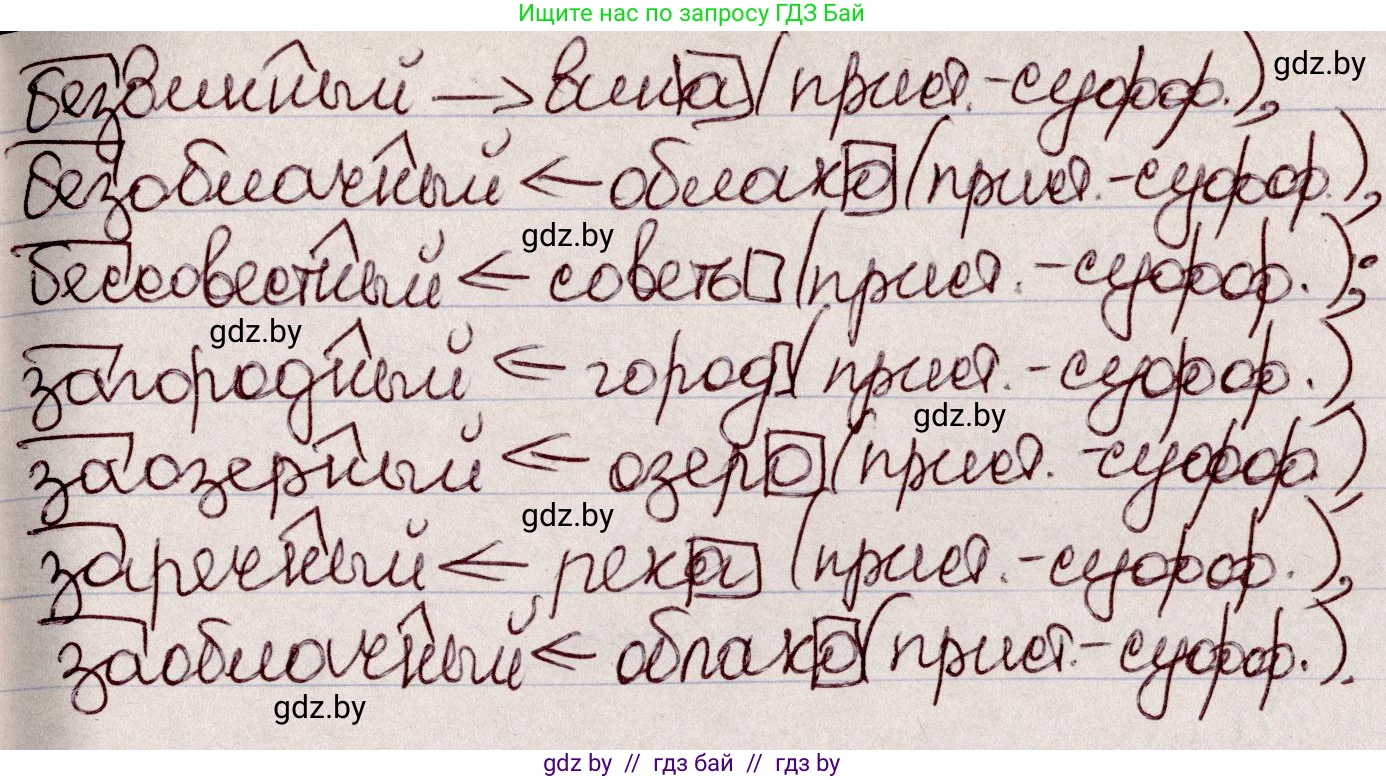 Ищите нас по запросу ГДЗ Бай
безвинный → вина (прист.-суфф.),
gdz.by
безоблачный ← облако (прист.-суфф.),
gdz.by
бессовестный ← советь (прист.-суфф.);
gdz.by
загородный ← город (прист.-суфф.)
gdz.by
заозерный ← озеро (прист.-суфф.)
gdz.by
заречный ← река (прист.-суфф.),
заоблачный ← облако (прист.-суфф.).
gdz.by
gdz by // гдз бай // гдз by